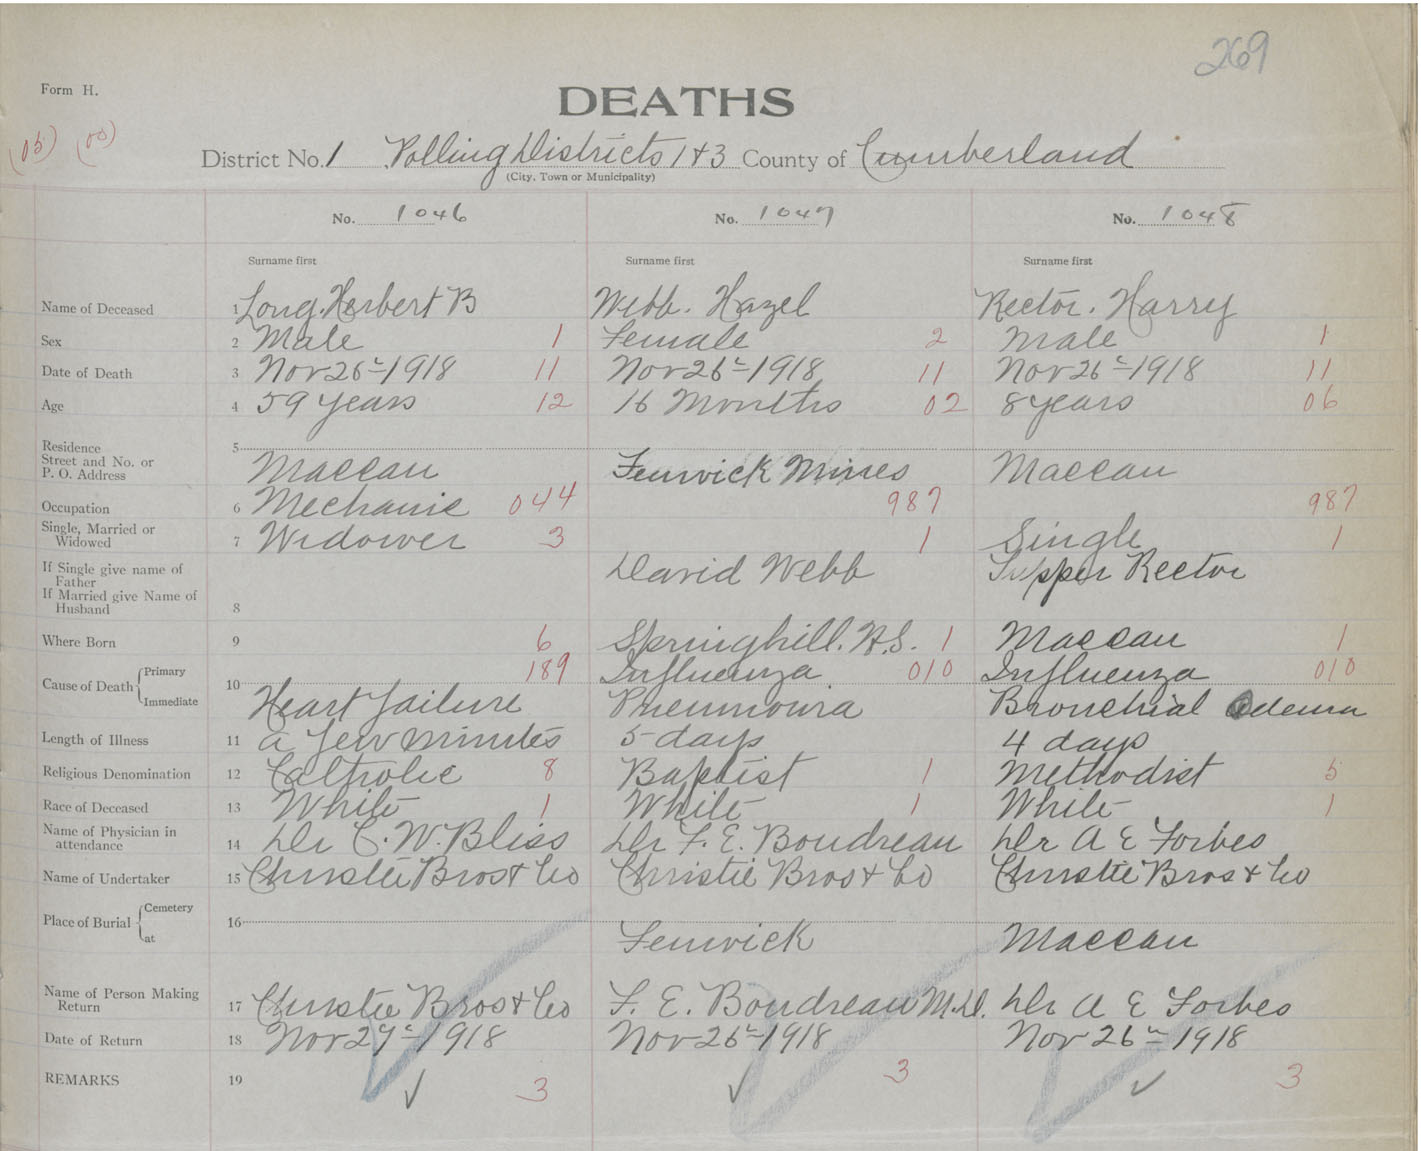 269
Form H.
DEATHS
(05) (00)
District No. 1 Polling Districts 1 & 3 County of Cumberland
(City, Town or Municipality)
No. 1046 No. 1047 No. 1048
Surname first Surname first Surname first
Name of Deceased 1 Long. Herbert B Webb. Hazel Rector. Harry
Sex 2 Male 1 Female 2 Male 1
Date of Death 3 Nov 26th 1918 11 Nov 26th 1918 11 Nov 26th 1918 11
Age 4 59 years 12 16 Months 02 8 years 06
Residence 5
Street and No. or
P. O. Address Maccan Fenwick Mines Maccan
Occupation 6 Mechanic 044 987 987
Single, Married or
Widowed 7 Widower 3 1 Single 1
If Single give name of
Father David Webb Rector
If Married give Name of
Husband 8
Where Born 9 6 Springhill. N.S. 1 Maccan 1
Cause of Death Primary 10 189 Influenza 010 Influenza 010
Immediate Heart failure Pneumonia Bronchial Edema
Length of Illness 11 a few minutes 5 days 4 days
Religious Denomination 12 Catholic 8 Baptist 1 Methodist 5
Race of Deceased 13 White 1 White 1 White 1
Name of Physician in
attendance 14 Dr C. W. Bliss Dr F. E. Boudreau Dr A E Forbes
Name of Undertaker 15 Christie Bros & Co Christie Bros & Co Christie Bros & Co
Place of Burial Cemetery 16
at Fenwick Maccan
Name of Person Making
Return 17 Christie Bros & Co F. E. Boudreau M.D. Dr A E Forbes
Date of Return 18 Nov 27th 1918 Nov 26th 1918 Nov 26th 1918
REMARKS 19 ✓ 3 ✓ 3 ✓ 3